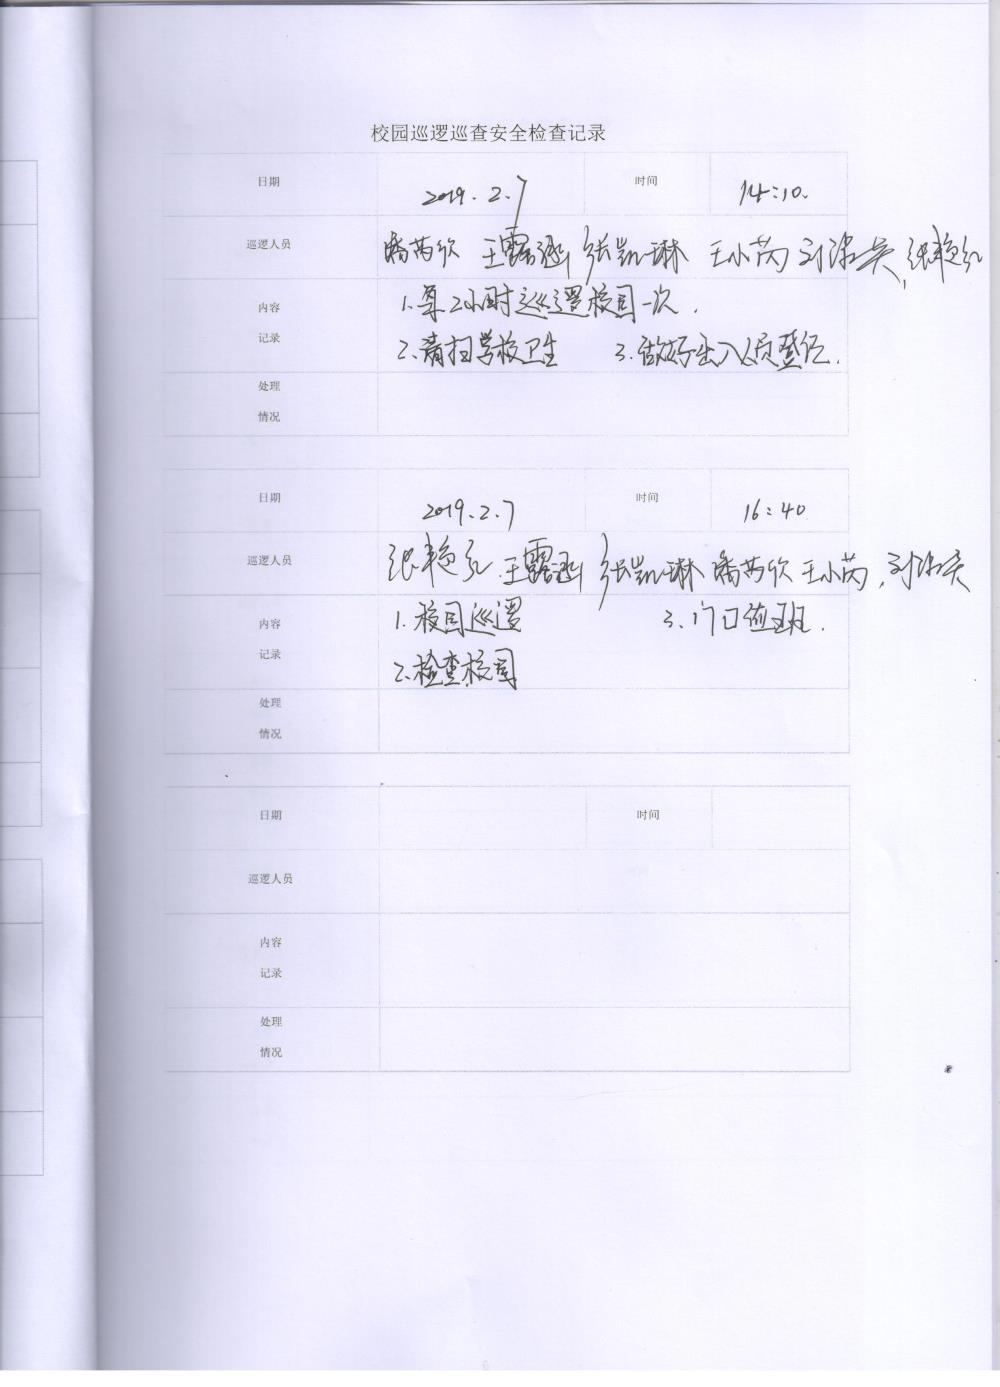 校园巡逻巡查安全检查记录
日期 2019.2.7 时间 14:10.
巡逻人员 潘芮欣 王露涵 张凯琳 王小芮 刘 张艳红
内容 1.每2小时巡逻校园一次.
记录 2.清扫学校卫生 3.做好出入人员登记.
处理
情况
日期 2019.2.7 时间 16:40
巡逻人员 张艳红 王露涵 张凯琳 潘芮欣 王小芮, 刘
内容 1.校园巡逻 3.门口值班.
记录 2.检查校园
处理
情况
日期 时间
巡逻人员
内容
记录
处理
情况